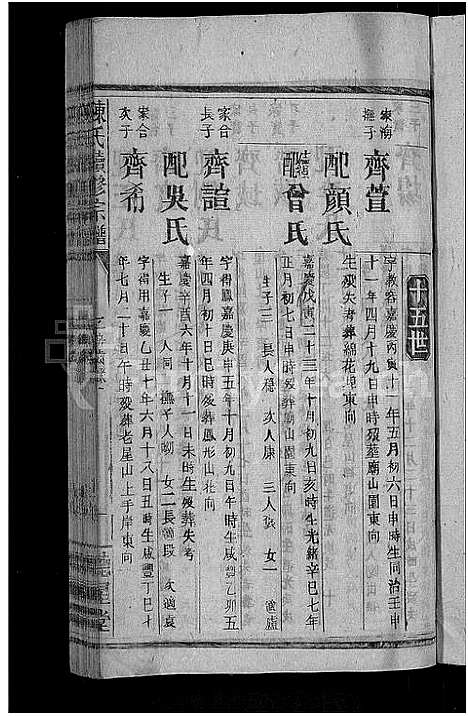 十五世
家海
撫子
齊萱
字教容嘉慶丙寅十一年五月初六日申時生同治壬申
十一年四月十九日申時歿葬廟山園東向
配顏氏
生歿失考葬綿花埠東向
繼配曾氏
嘉慶戊寅二十三年十月初九日亥時生光緒辛巳七年
正月初七日申時歿葬廟山園東向
生子三 長人穩 次人康 三人 女一 適盧
家合
長子
齊諠
字得鳳嘉慶庚申五年十月初九日午時生咸豐乙卯五
年四月初十日巳時歿葬鳳形山北向
配吳氏
嘉慶辛酉六年十月十一日未時生歿葬失考
生子一 人同 撫子人 女二長適段 次適袁
家合
次子
齊希
字得用嘉慶乙丑十年六月十八日丑時生咸豐丁巳七
年七月二十日午時歿葬老屋山上手岸東向
陳氏續修宗譜